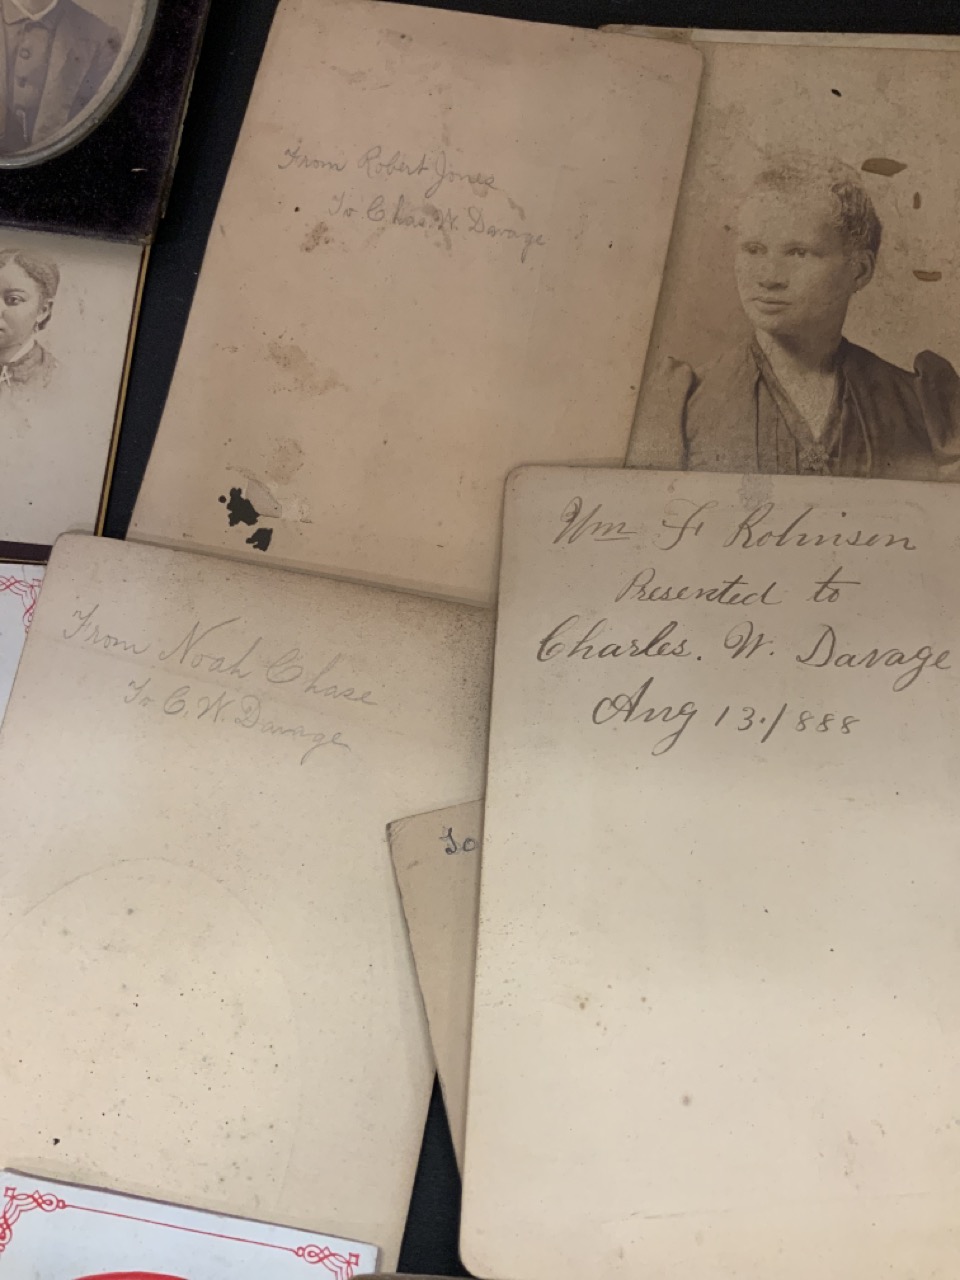 From Robert Jones
To Chas. W. Davage
Wm F Robinson
Presented to
Charles. W. Davage
Aug 13./888
From Noah Chase
To C. W. Davage
To